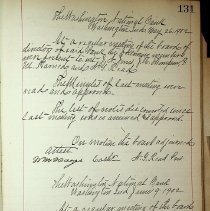 131
The Washington National Bank
Washington Ind. May 26, 1902
At a regular meeting of the board of
directors of said Bank, the following members
were present to wit:
M.
The minutes of last meeting were
read and approved.
The list of notes discounted since
last meeting were examined & approved.
On motion the board adjourned
attest
Cash H. G. Read Pres
The Washington National Bank
Washington Ind. June 2, 1902
At a regular meeting of the board